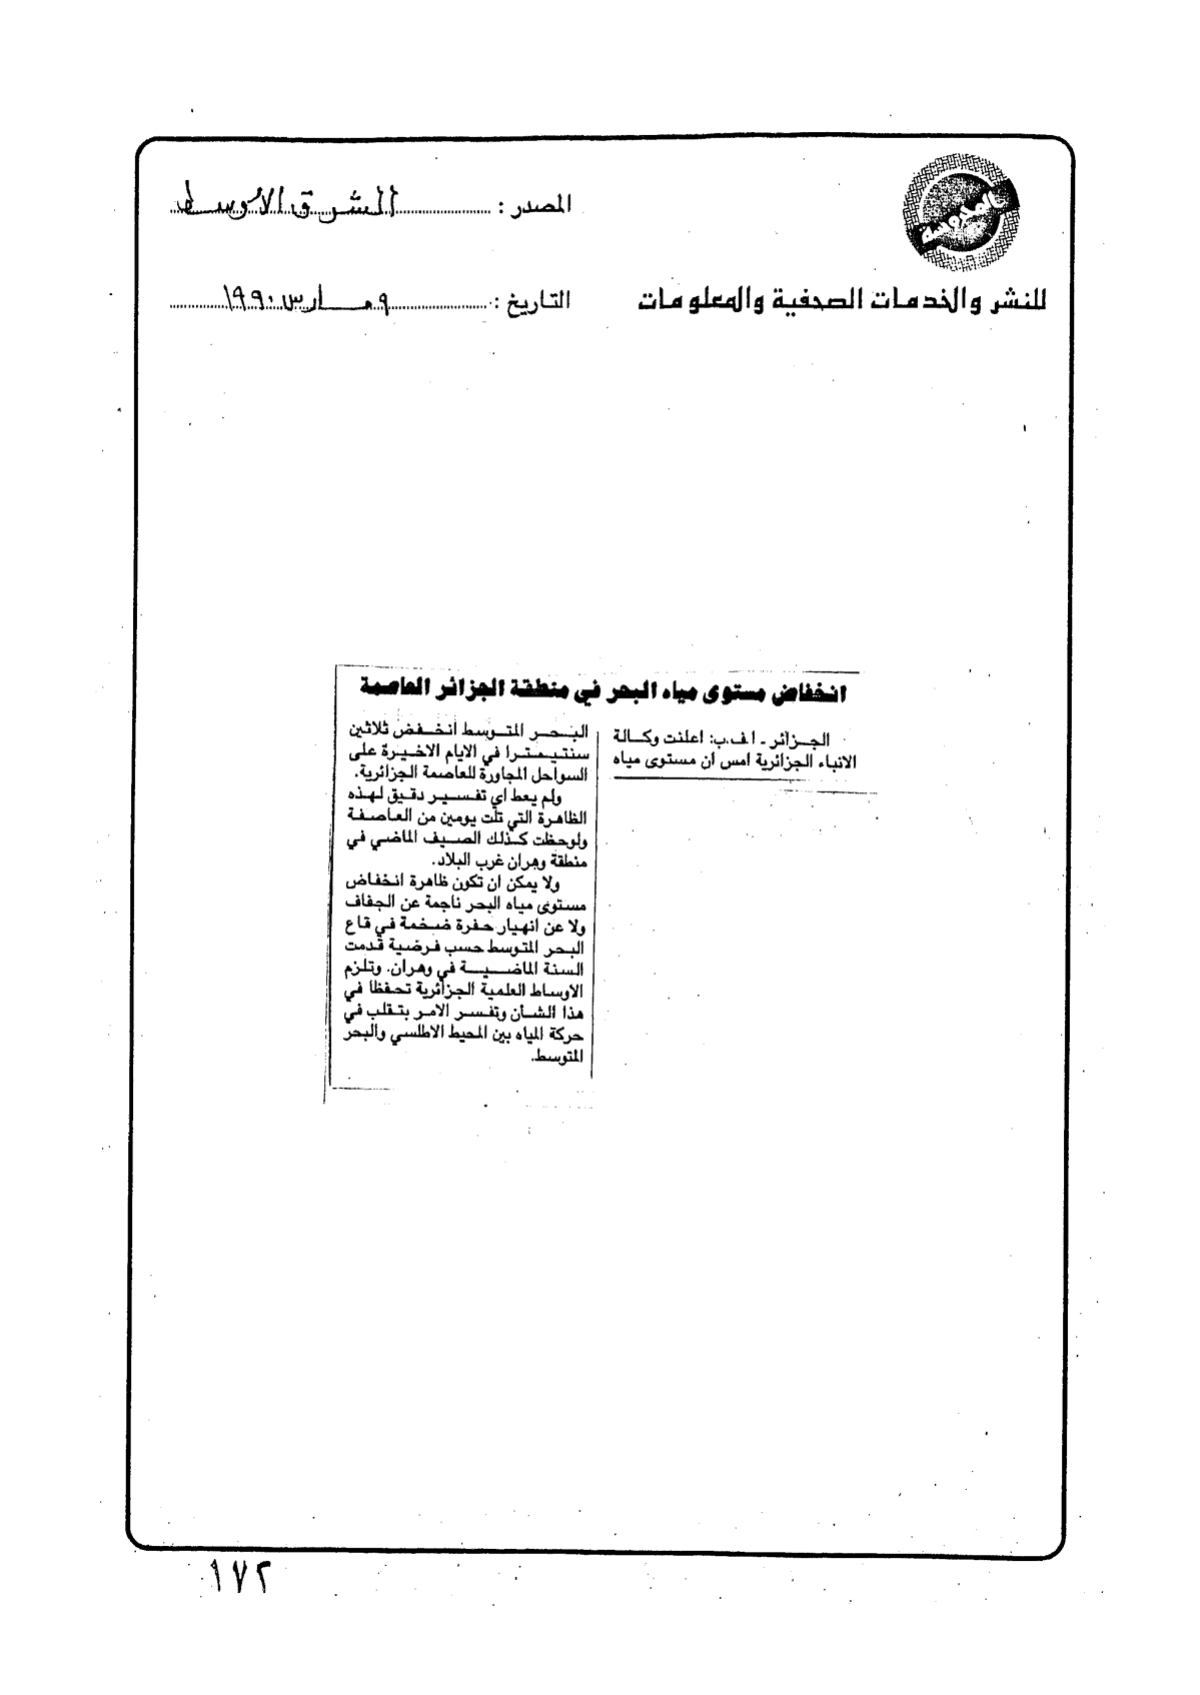 المصدر : الشرق الأوسط
للنشر والخدمات الصحفية والمعلومات
التاريخ : ٩ مارس ١٩٩٠
انخفاض مستوى مياه البحر في منطقة الجزائر العاصمة
الجزائر ـ ا.ف.ب: اعلنت وكالة
الانباء الجزائرية امس ان مستوى مياه
البحر المتوسط انخفض ثلاثين
سنتيمترا في الايام الاخيرة على
السواحل المجاورة للعاصمة الجزائرية.
ولم يعط اي تفسير دقيق لهذه
الظاهرة التي تلت يومين من العاصفة
ولوحظت كذلك الصيف الماضي في
منطقة وهران غرب البلاد.
ولا يمكن ان تكون ظاهرة انخفاض
مستوى مياه البحر ناجمة عن الجفاف
ولا عن انهيار حفرة ضخمة في قاع
البحر المتوسط حسب فرضية قدمت
السنة الماضية في وهران. وتلزم
الاوساط العلمية الجزائرية تحفظا في
هذا الشان وتفسر الامر بتقلب في
حركة المياه بين المحيط الاطلسي والبحر
المتوسط.
١٧٢